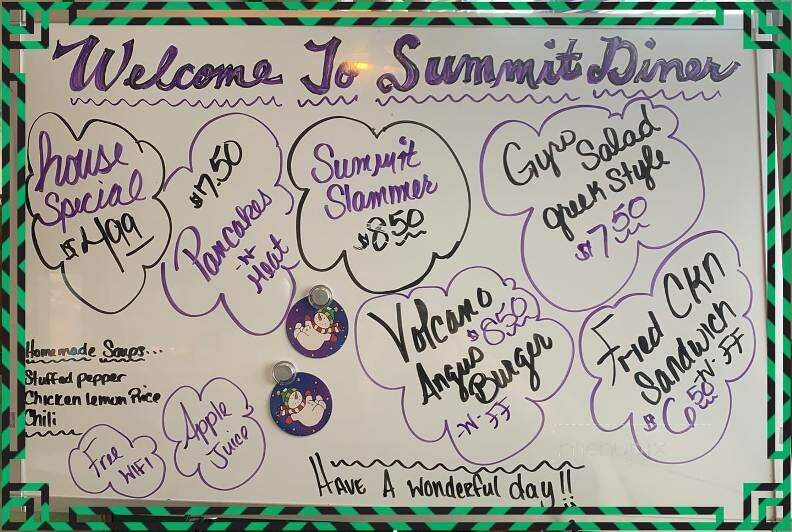 Welcome To Summit Diner
House
Special
$4.99
$7.50
Pancakes
-W-
Meat
Summit
Slammer
$8.50
Gyro Salad
greek style
$7.50
Volcano
$8.50
Angus
Burger
-W- FF
Fried CKN
Sandwich
-W- FF
$6.50
Homemade Soups...
Stuffed pepper
Chicken Lemon Rice
Chili
Free
WIFI
Apple
Juice
Have A wonderful day!!
menupix